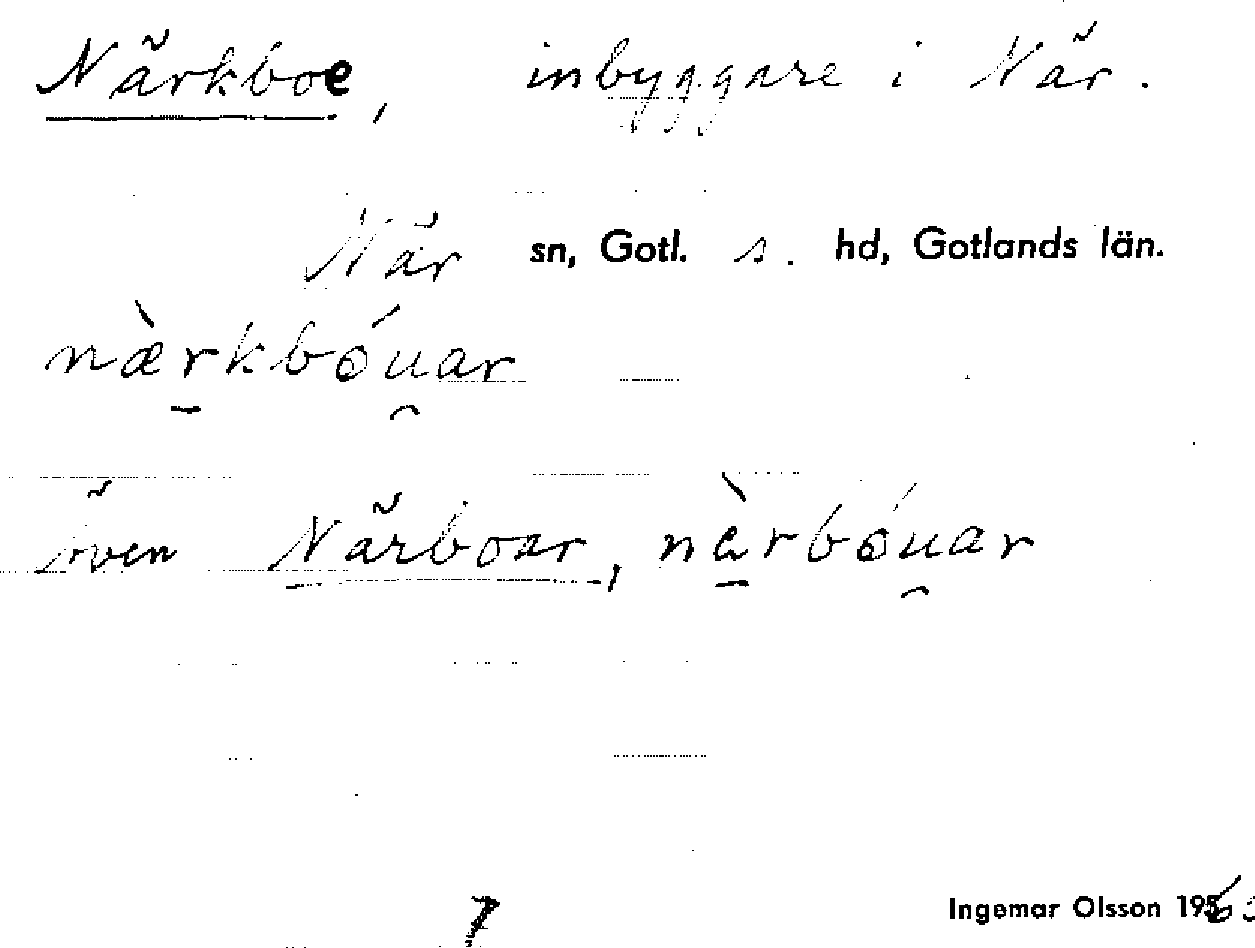 Närkboe, inbyggare i När.
När sn, Gotl. s. hd, Gotlands län.
næ̀rkbóu̯ar
även Närboar, næ̀rbóu̯ar
Ingemar Olsson